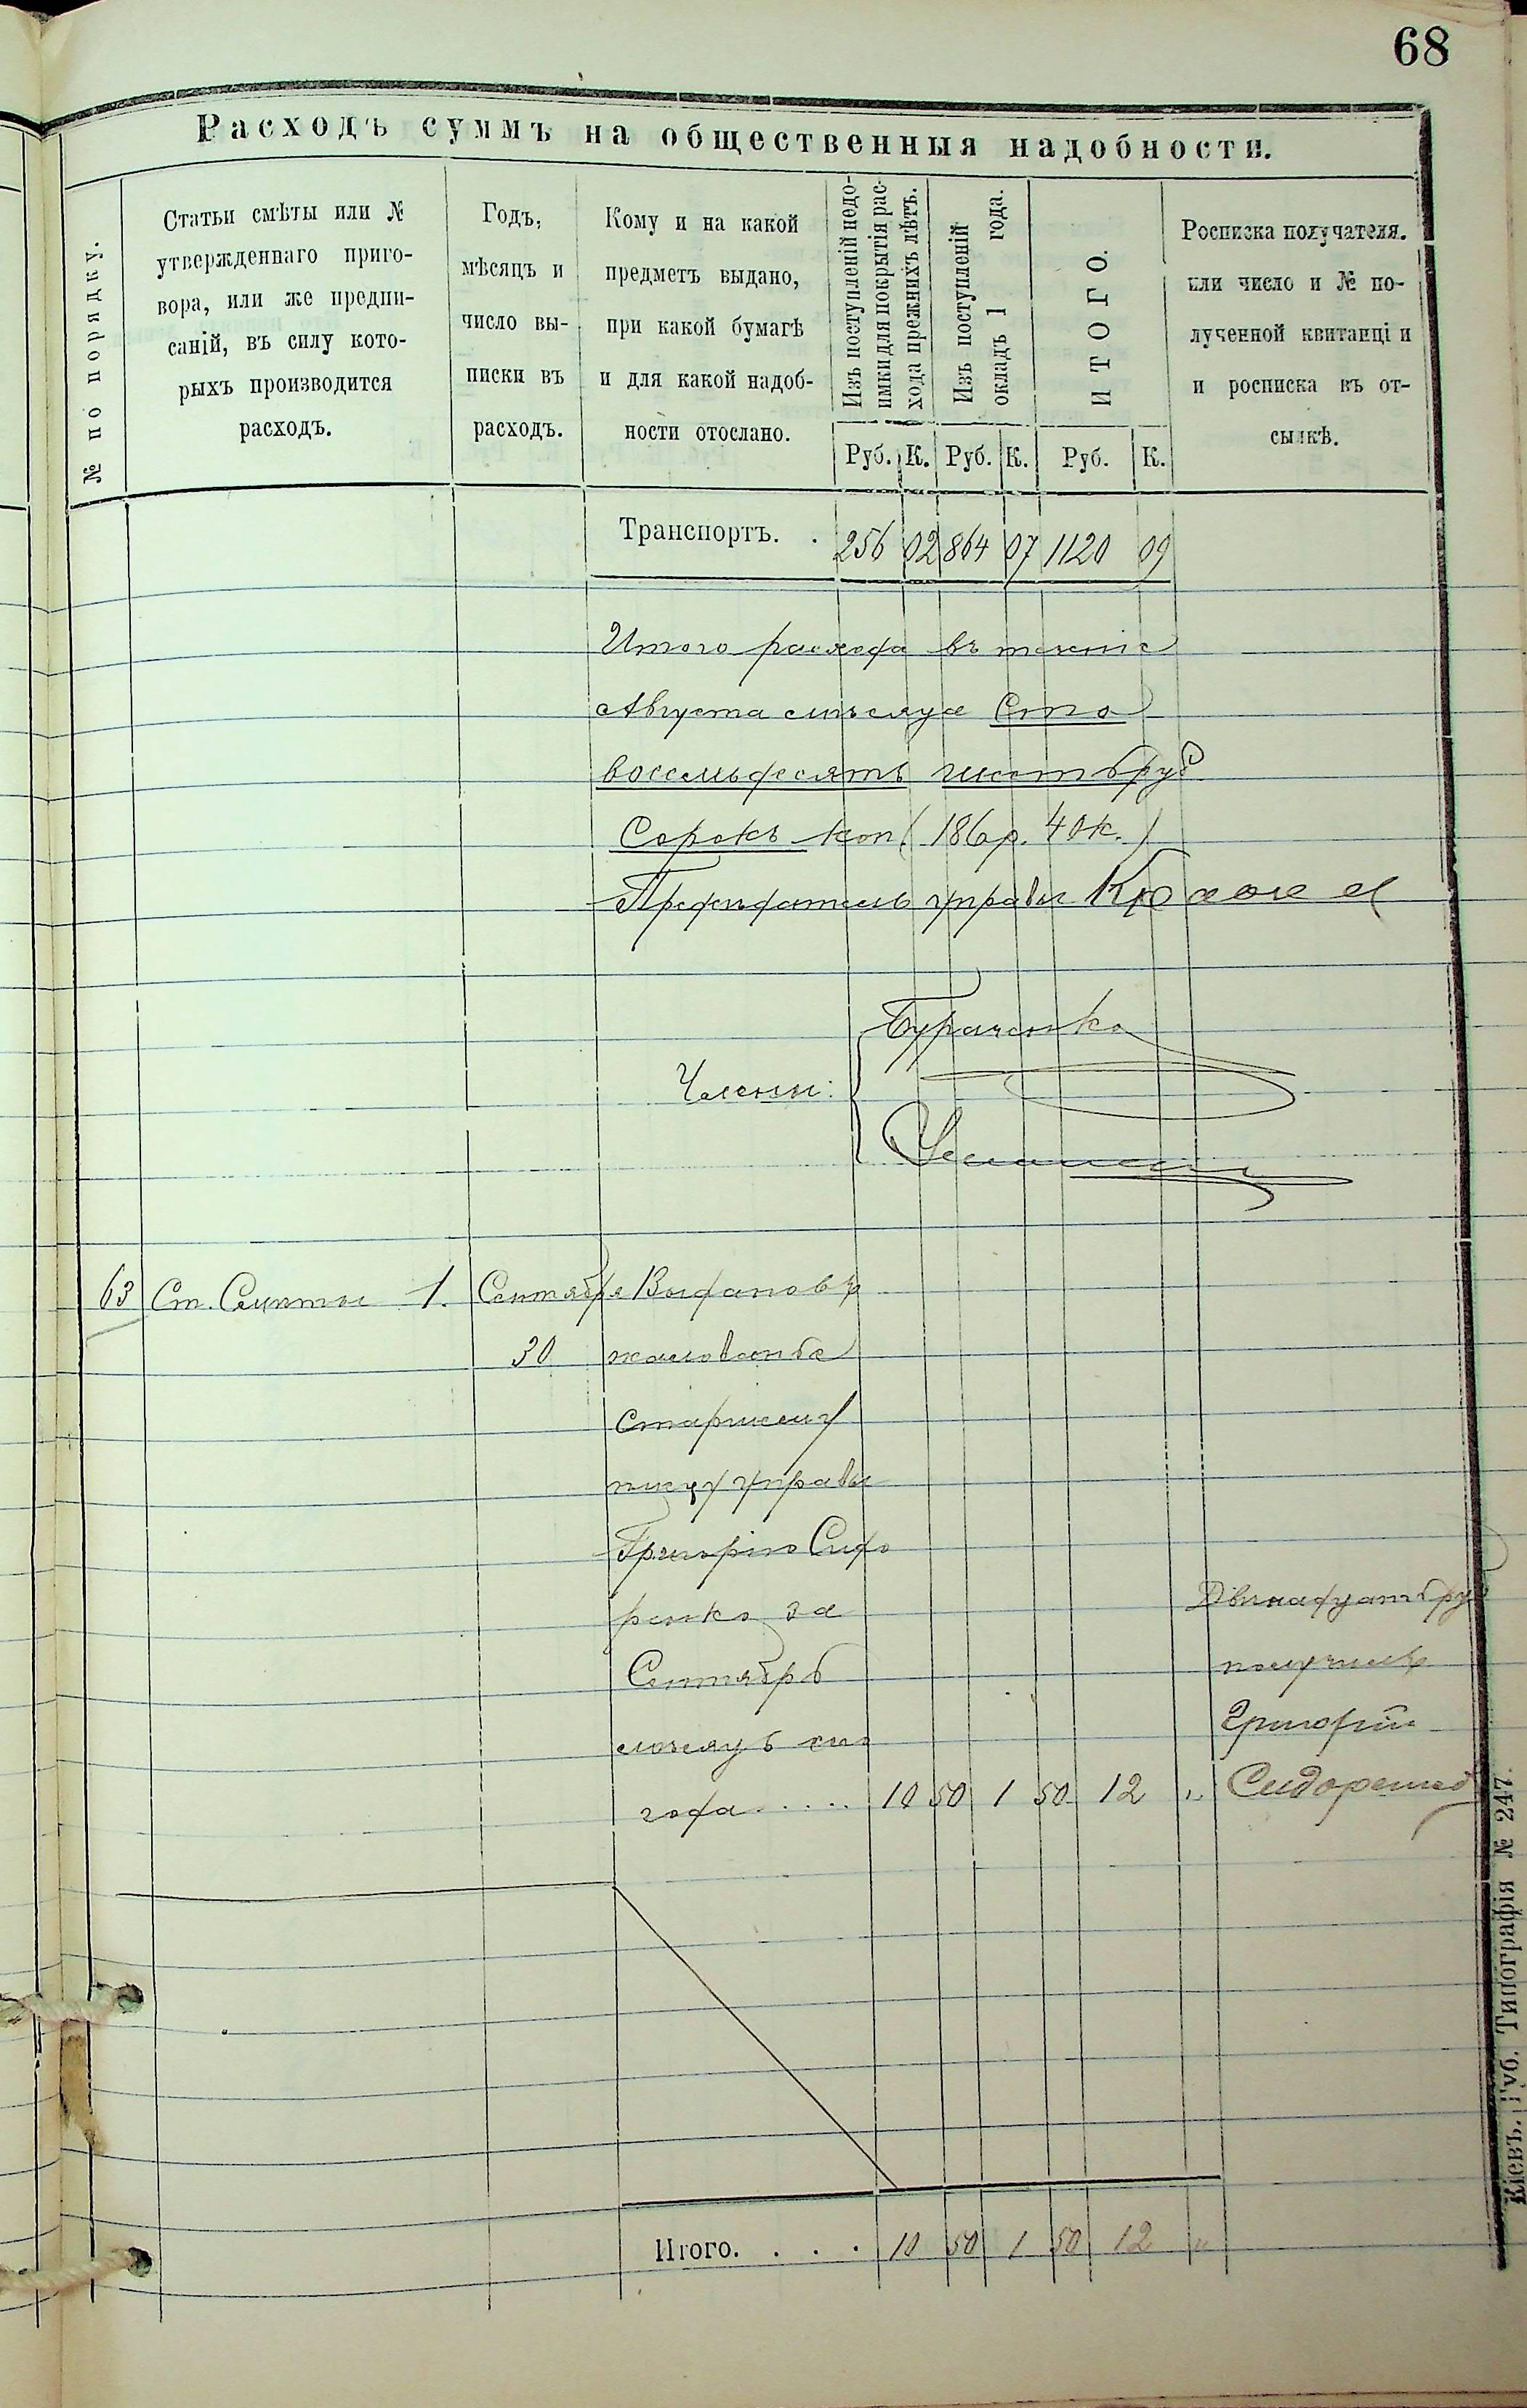 68
Расходъ суммъ на общественныя надобности.
№ по порядку.
Статьи смѣты или №
утвержденнаго приго-
вора, или же предпи-
саній, въ силу кото-
рыхъ производится
расходъ.
Годъ,
мѣсяцъ и
число вы-
писки въ
расходъ.
Кому и на какой
предметъ выдано,
при какой бумагѣ
и для какой надоб-
ности отослано.
Изъ поступленій недо-
имки для покрытія рас-
хода прежнихъ лѣтъ.
Изъ поступленій
окладъ 1 года.
ИТОГО.
Росписка получателя.
или число и № по-
лученной квитанціи
и росписка въ от-
сылкѣ.
Руб. К. Руб. К. Руб. К.
Транспортъ. . 256 02 864 07 1120 09
Итого расхода въ теченіе
Августа мѣсяца Сто
восемьдесятъ шесть руб
Сорокъ коп (186 р. 40 к.)
Предсѣдатель управы
Бураченко
Члены:
63 Ст. Смѣты 1. Сентября Выдановъ
30 жалованья
старшему
писцу управы
Григорію Сидо
ренко за
Сентябрь
Двѣнадцать руб
получилъ
мѣсяцъ сего
Григорій
года ..... 10 50 1 50 12 „ Сидоренко
Итого. . . . 10 50 1 50 12 „
Кіевъ. Губ. Типографія № 247.